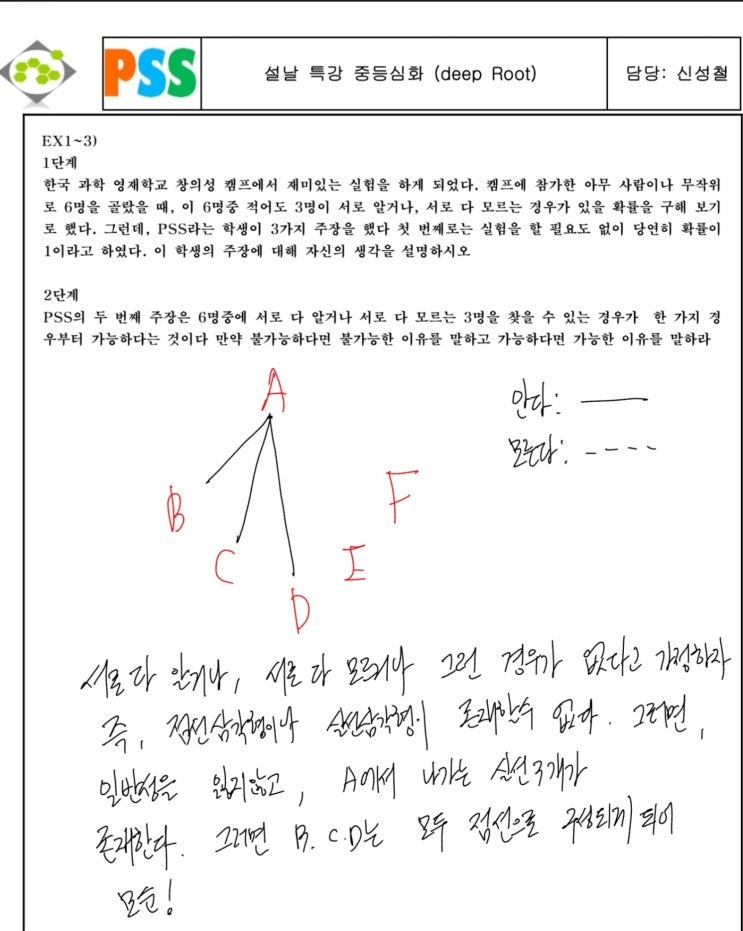 PSS
설날 특강 중등심화 (deep Root)
담당: 신성철
EX1~3)
1단계
한국 과학 영재학교 창의성 캠프에서 재미있는 실험을 하게 되었다. 캠프에 참가한 아무 사람이나 무작위
로 6명을 골랐을 때, 이 6명중 적어도 3명이 서로 알거나, 서로 다 모르는 경우가 있을 확률을 구해 보기
로 했다. 그런데, PSS라는 학생이 3가지 주장을 했다 첫 번째로는 실험을 할 필요도 없이 당연히 확률이
1이라고 하였다. 이 학생의 주장에 대해 자신의 생각을 설명하시오
2단계
PSS의 두 번째 주장은 6명중에 서로 다 알거나 서로 다 모르는 3명을 찾을 수 있는 경우가 한 가지 경
우부터 가능하다는 것이다 만약 불가능하다면 불가능한 이유를 말하고 가능하다면 가능한 이유를 말하라
A
안다:
모른다:
B
F
C
E
D
서로 다 알거나, 서로 다 모르거나 그런 경우가 없다고 가정하자
즉, 점선삼각형이나 실선삼각형이 존재할수 없다. 그러면,
일반성을 잃지않고, A에서 나가는 실선 3개가
존재한다. 그러면 B. C. D는 모두 점선으로 구성되게 되어
모순!